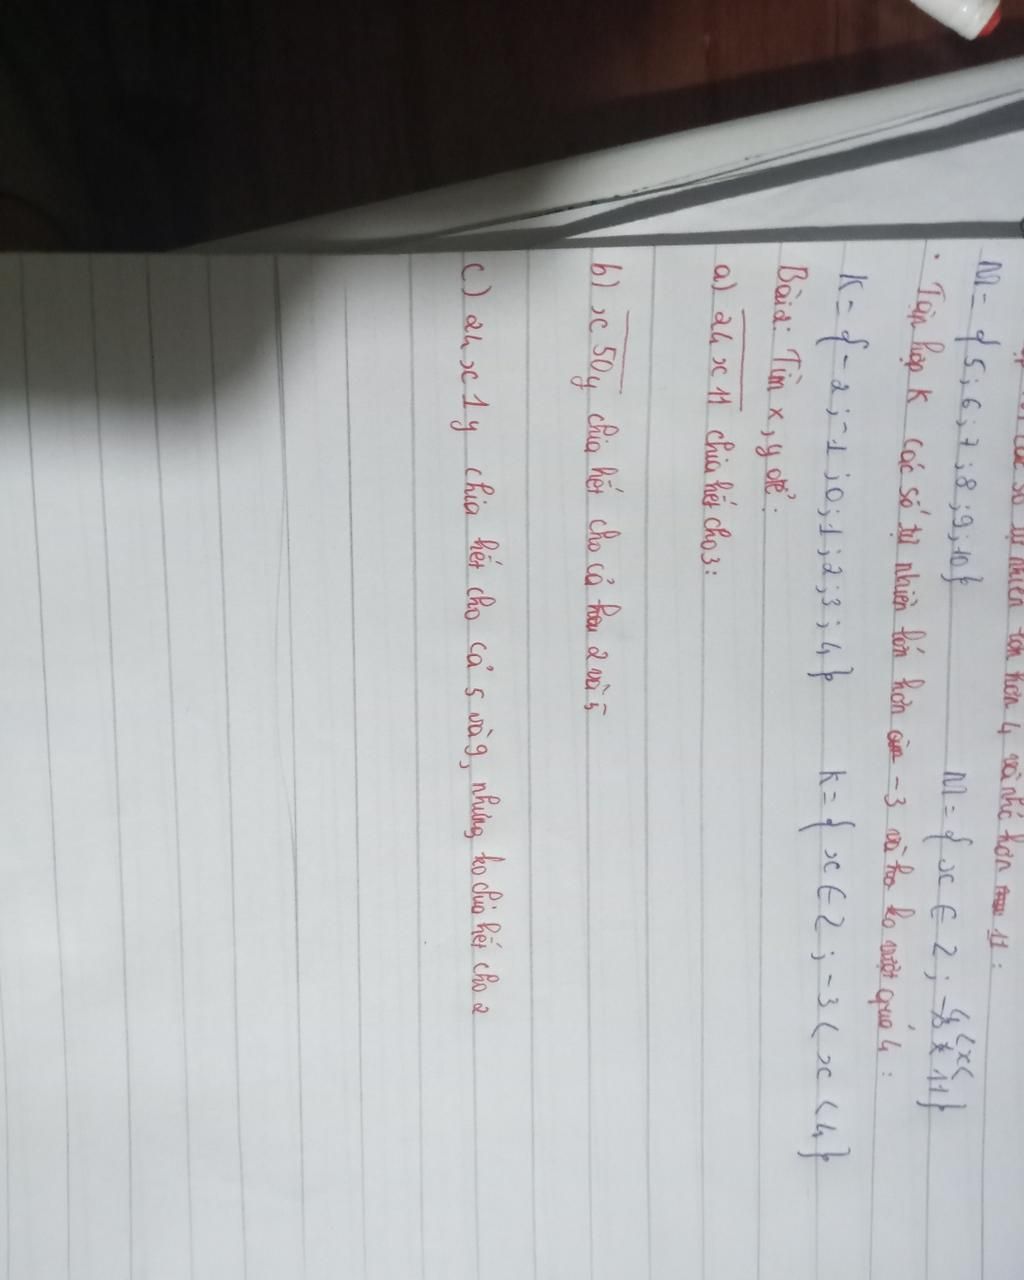 số tự nhiên lớn hơn 4 và nhỏ hơn 11:
M = { 5 ; 6 ; 7 ; 8 ; 9 ; 10} M = { x ∈ Z ; 4 < x < 11}
· Tập hợp K các số tự nhiên lớn hơn -3 và ko vượt quá 4 :
K = { - 2 ; - 1 ; 0 ; 1 ; 2 ; 3 ; 4} K = { x ∈ Z ; - 3 < x < 4}
Bài 2: Tìm x, y để:
a) 24x11 chia hết cho 3:
b) x50y chia hết cho cả 2 và 5
c.) 24x1y chia hết cho cả 5 và 9, nhưng ko chia hết cho 2